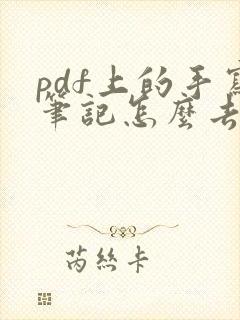 pdf上的手寫
筆記怎麼去
芮絲卡